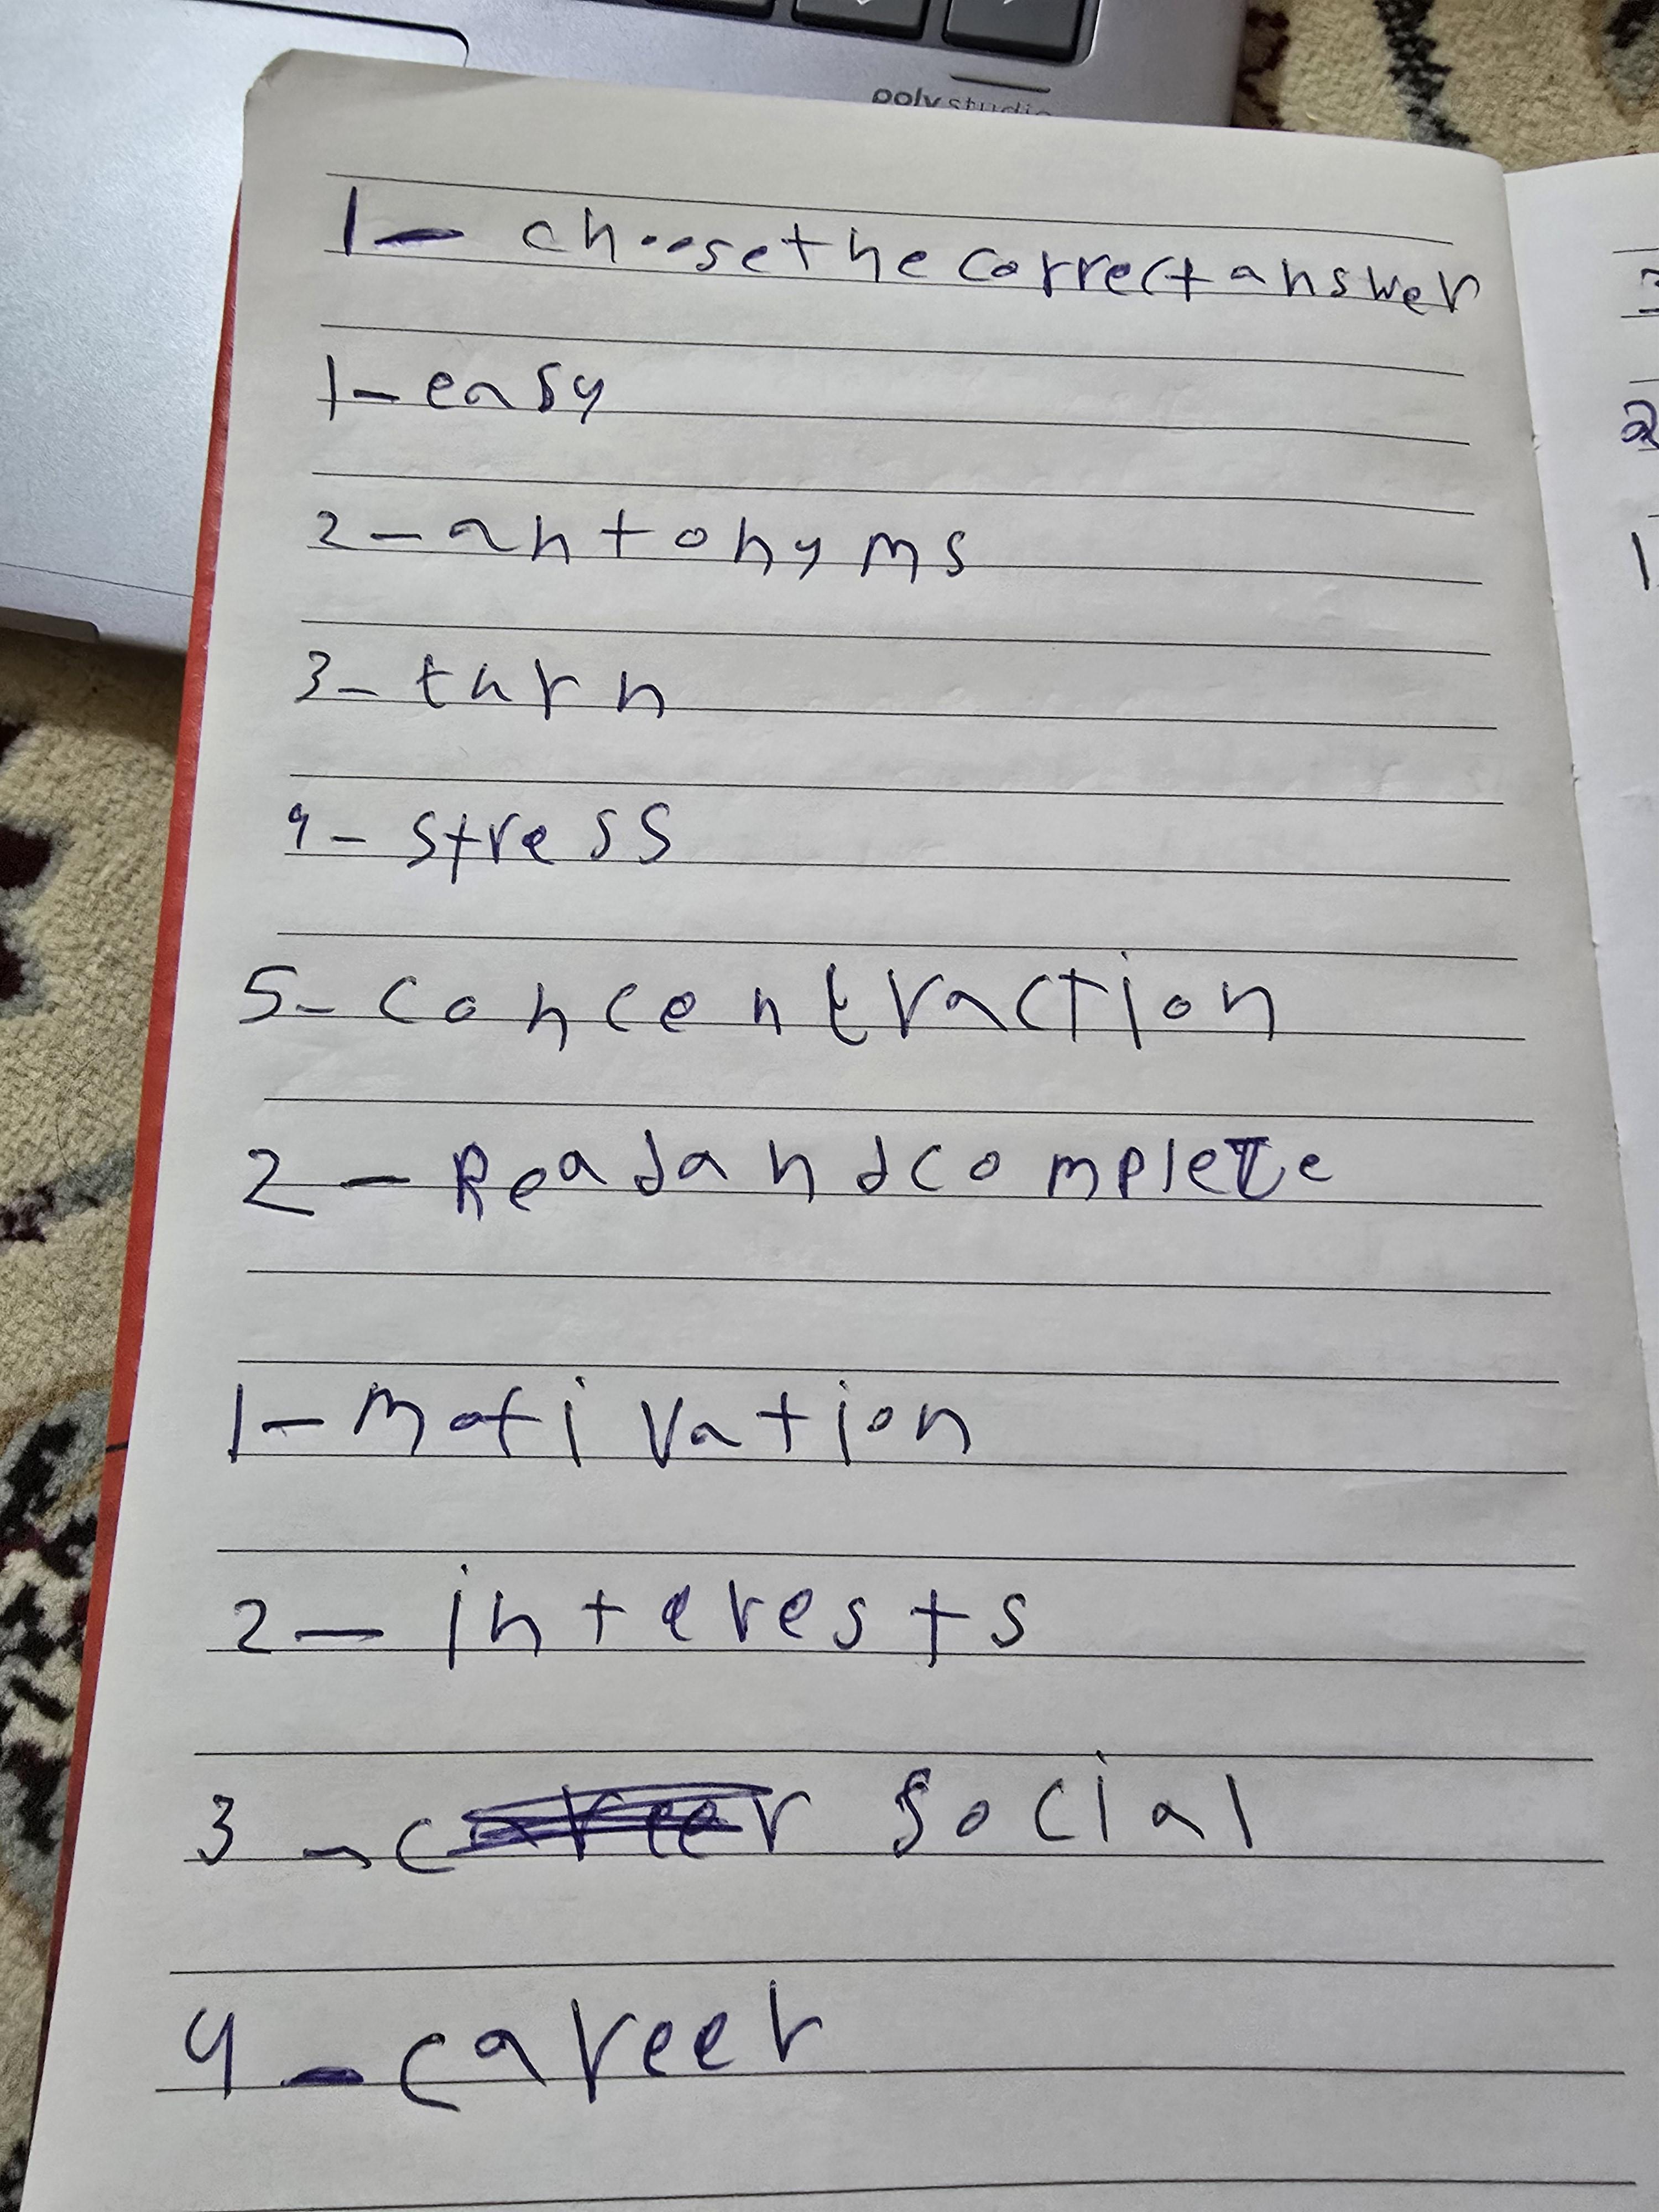 poly studio
1- choose the correct answer
1- easy
2- antonyms
3- turn
4- stress
5- concentraction
2- Read and complete
1- motivation
2- interests
3- career social
4- career
3
2
1